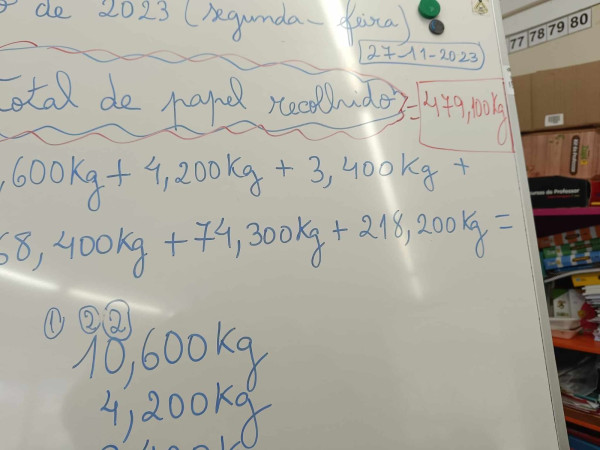 de 2023 (segunda-feira)
27-11-2023
77 78 79 80
Total de papel recolhido = 479,100Kg
,600Kg + 4,200Kg + 3,400Kg +
68,400Kg + 74,300Kg + 218,200Kg =
1 2 2
10,600Kg
4,200Kg